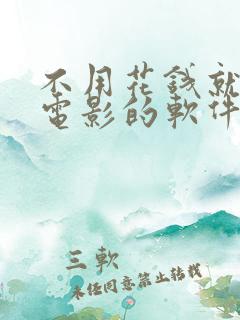 不用花钱就
電影的軟件
三軟
未经同意禁止转载